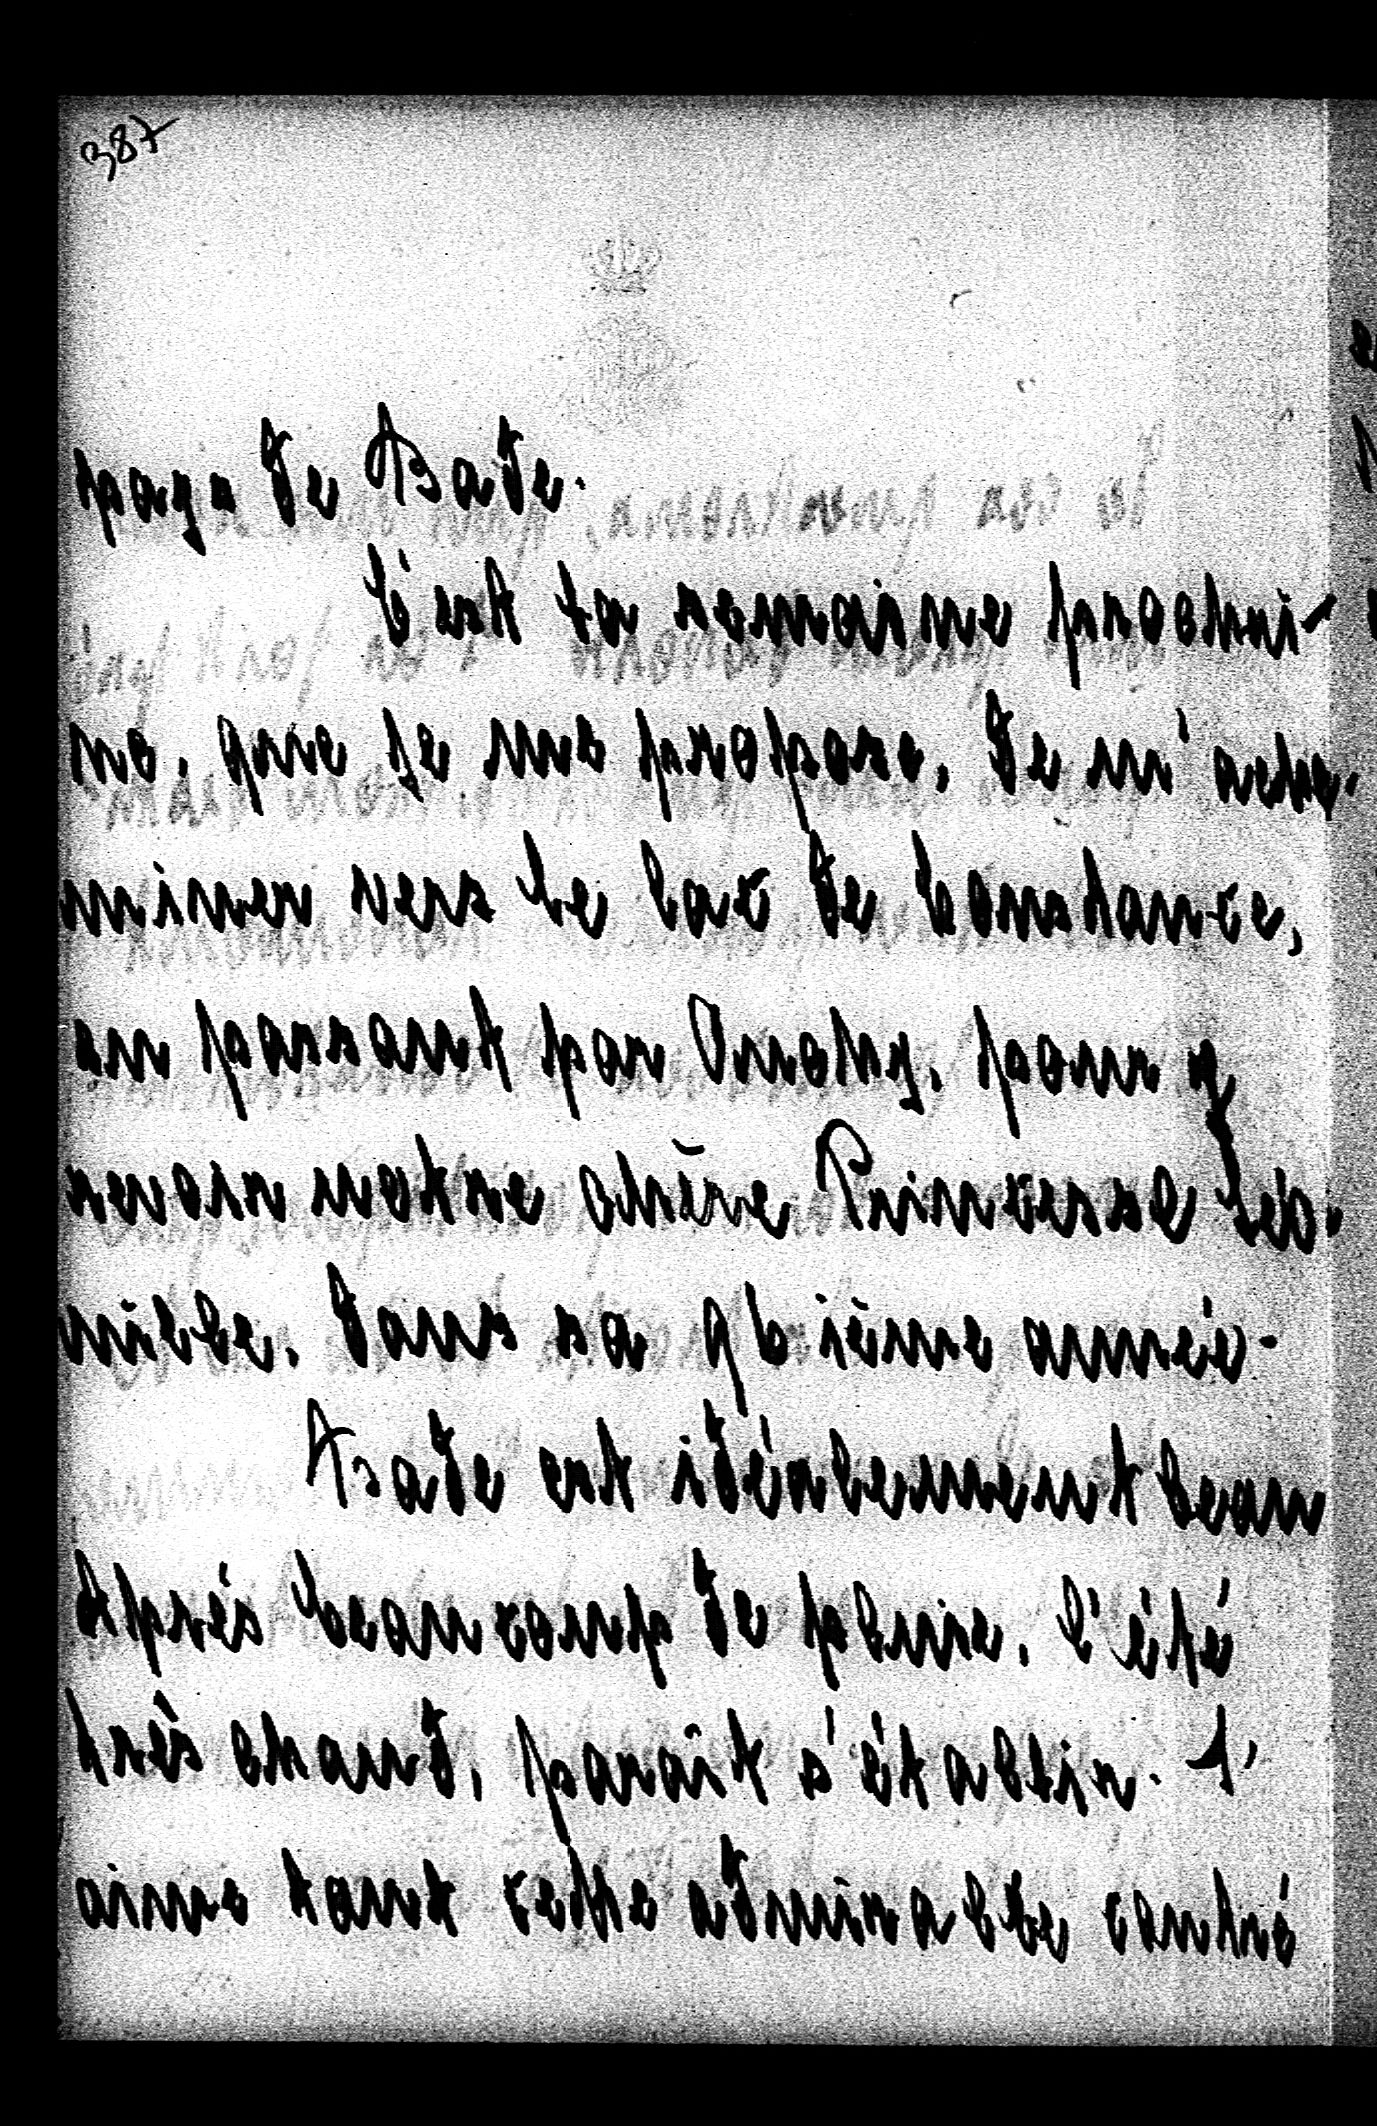 387
pays de Bade.
C'est la semaine prochai-
ne, que je me propose, de m'ache-
miner vers le Lac de Constance,
en passant par Umkirch, pour y
revoir notre chère Princesse Léo-
nille, dans sa 96 ième année.
Bade est idéalement beau
Après beaucoup de pluie, l'été
très chaud, paraît s'établir. J'
aime tant cette admirable contré